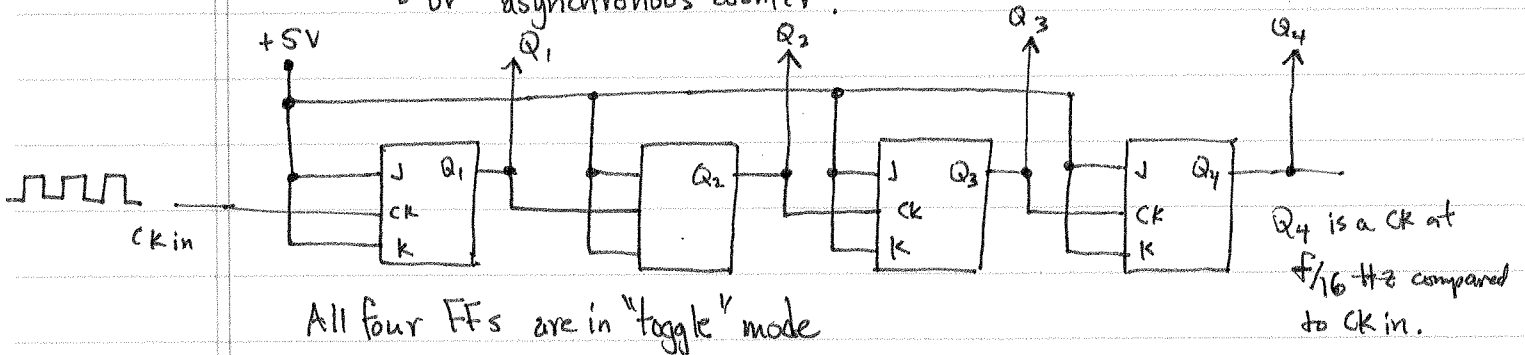 or asynchronous counter.
+5V
Q1
Q2
Q3
Q4
J Q1
CK
K
Q2
J Q3
CK
K
J Q4
CK
K
CK in
Q4 is a CK at
f/16 Hz compared
to CK in.
All four FFs are in "toggle" mode